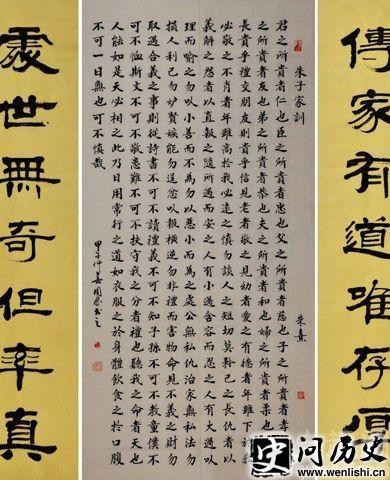 傳家有道唯存厚
朱子家訓 朱熹
君之所貴者仁也臣之所貴者忠也父之所貴者慈也子之所貴者孝
之所貴者友也弟之所貴者恭也夫之所貴者和也婦之所貴者柔也事
長貴乎禮交朋友貴乎信見老者敬之見幼者愛之有德者年雖下於我
必敬之不肖者年雖高於我必遠之慎勿談人之短切莫矜己之長仇者以
義解之怨者以直報之隨所遇而安之人有小過含容而忍之人有大過以
理而喻之勿以小善而不為勿以惡小而為之處公無私仇治家無私法勿
損人利己勿妒賢嫉能勿逞忿以報橫逆勿非禮而害物命見不義之財勿
取遇合義之事則從詩書不可不讀禮義不可不知子孫不可不教童僕不
可不恤斯文不可不敬患難不可不扶守我之分者禮也聽我之命者天也
人能如是天必相之此乃日用常行之道如衣服之於身體飲食之於口腹
不可一日無也可不慎哉
甲子仲
處世無奇但率真
史问历史
www.wenlishi.cn